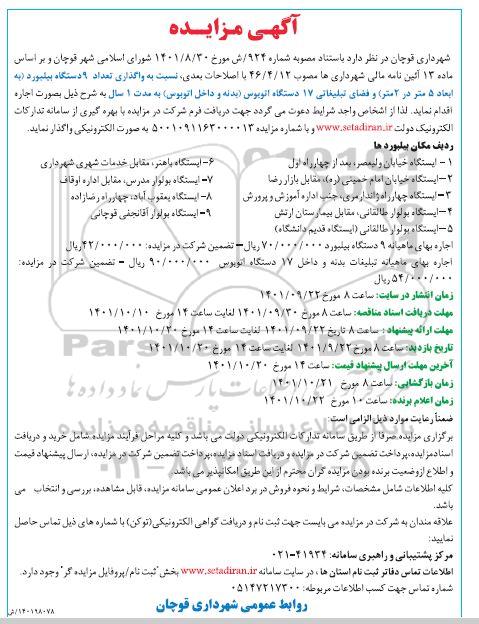 آگهی مزایده
شهرداری قوچان در نظر دارد باستناد مصوبه شماره ۹۲۴/ش مورخ ۱۴۰۱/۸/۳۰ شورای اسلامی شهر قوچان و بر اساس
ماده ۱۳ آئین نامه مالی شهرداری ها مصوب ۴۶/۴/۱۲ با اصلاحات بعدی، نسبت به واگذاری تعداد ۹دستگاه بیلبورد (به
ابعاد ۵ متر در ۲متر) و فضای تبلیغاتی ۱۷ دستگاه اتوبوس (بدنه و داخل اتوبوس) به مدت ۱ سال به شرح ذیل بصورت اجاره
اقدام نماید. لذا از اشخاص واجد شرایط دعوت می گردد جهت دریافت فرم شرکت در مزایده با بهره گیری از سامانه تدارکات
الکترونیک دولت www.setadiran.ir و با شماره مزایده ۵۰۰۱۰۹۱۱۶۳۰۰۰۰۱۳ به صورت الکترونیکی واگذار نماید.
ردیف مکان بیلبورد ها
۱- ایستگاه خیابان ولیعصر، بعد از چهارراه اول
۲- ایستگاه خیابان امام خمینی (ره)، مقابل بازار رضا
۳- ایستگاه چهارراه ژاندارمری، جنب اداره آموزش و پرورش
۴- ایستگاه بولوار طالقانی، مقابل بیمارستان ارتش
۵- ایستگاه بولوار طالقانی (ایستگاه قدیم دانشگاه)
۶- ایستگاه باهنر، مقابل خدمات شهری شهرداری
۷- ایستگاه بولوار مدرس، مقابل اداره اوقاف
۸- ایستگاه یعقوب آباد، چهارراه رضازاده
۹- ایستگاه بولوار آقانجفی قوچانی
اجاره بهای ماهیانه ۹ دستگاه بیلبورد ۷۰/۰۰۰/۰۰۰ ریال- تضمین شرکت در مزایده: ۴۲/۰۰۰/۰۰۰ ریال
اجاره بهای ماهیانه تبلیغات بدنه و داخل ۱۷ دستگاه اتوبوس ۹۰/۰۰۰/۰۰۰ ریال - تضمین شرکت در مزایده:
۵۴/۰۰۰/۰۰۰ ریال
زمان انتشار در سایت: ساعت ۸ مورخ ۱۴۰۱/۰۹/۲۲
مهلت دریافت اسناد مناقصه: ساعت ۸ مورخ ۱۴۰۱/۰۹/۳۰ لغایت ساعت ۱۴ مورخ ۱۴۰۱/۱۰/۱۰
مهلت ارائه پیشنهاد : ساعت ۸ تاریخ ۱۴۰۱/۰۹/۲۲ لغایت ساعت ۱۴ مورخ ۱۴۰۱/۱۰/۲۰
تاریخ بازدید: ساعت ۸ مورخ ۱۴۰۱/۹/۲۲ لغایت ساعت ۱۴ مورخ ۱۴۰۱/۱۰/۲۰
آخرین مهلت ارسال پیشنهاد قیمت: ساعت ۱۴ ۱۴۰۱/۱۰/۲۰
زمان بازگشایی: ساعت ۸ مورخ ۱۴۰۱/۱۰/۲۱
زمان اعلام برنده: ساعت ۱۰ مورخ ۱۴۰۱/۱۰/۲۲
ضمناً رعایت موارد ذیل الزامی است:
برگزاری مزایده صرفا از طریق سامانه تدارکات الکترونیکی دولت می باشد و کلیه مراحل فرآیند مزایده شامل خرید و دریافت
اسنادمزایده،پرداخت تضمین شرکت در مزایده و دریافت اسناد مزایده،پرداخت تضمین شرکت در مزایده، ارسال پیشنهاد قیمت
و اطلاع ازوضعیت برنده بودن مزایده گران محترم از این طریق امکانپذیر می باشد.
کلیه اطلاعات شامل مشخصات، شرایط و نحوه فروش در برد اعلان عمومی سامانه مزایده، قابل مشاهده، بررسی و انتخاب می
باشد.
علاقه مندان به شرکت در مزایده می بایست جهت ثبت نام و دریافت گواهی الکترونیکی(توکن) با شماره های ذیل تماس حاصل
نمایید:
مرکز پشتیبانی و راهبری سامانه: ۴۱۹۳۴-۰۲۱
اطلاعات تماس دفاتر ثبت نام استان ها ، در سایت سامانه www.setadiran.ir بخش"ثبت نام/پروفایل مزایده گر" وجود دارد.
شماره تماس جهت کسب اطلاعات مربوطه: ۰۵۱۴۷۲۱۷۳۰۰
روابط عمومی شهرداری قوچان
۱۴۰۱۹۸۰۷۸/ش